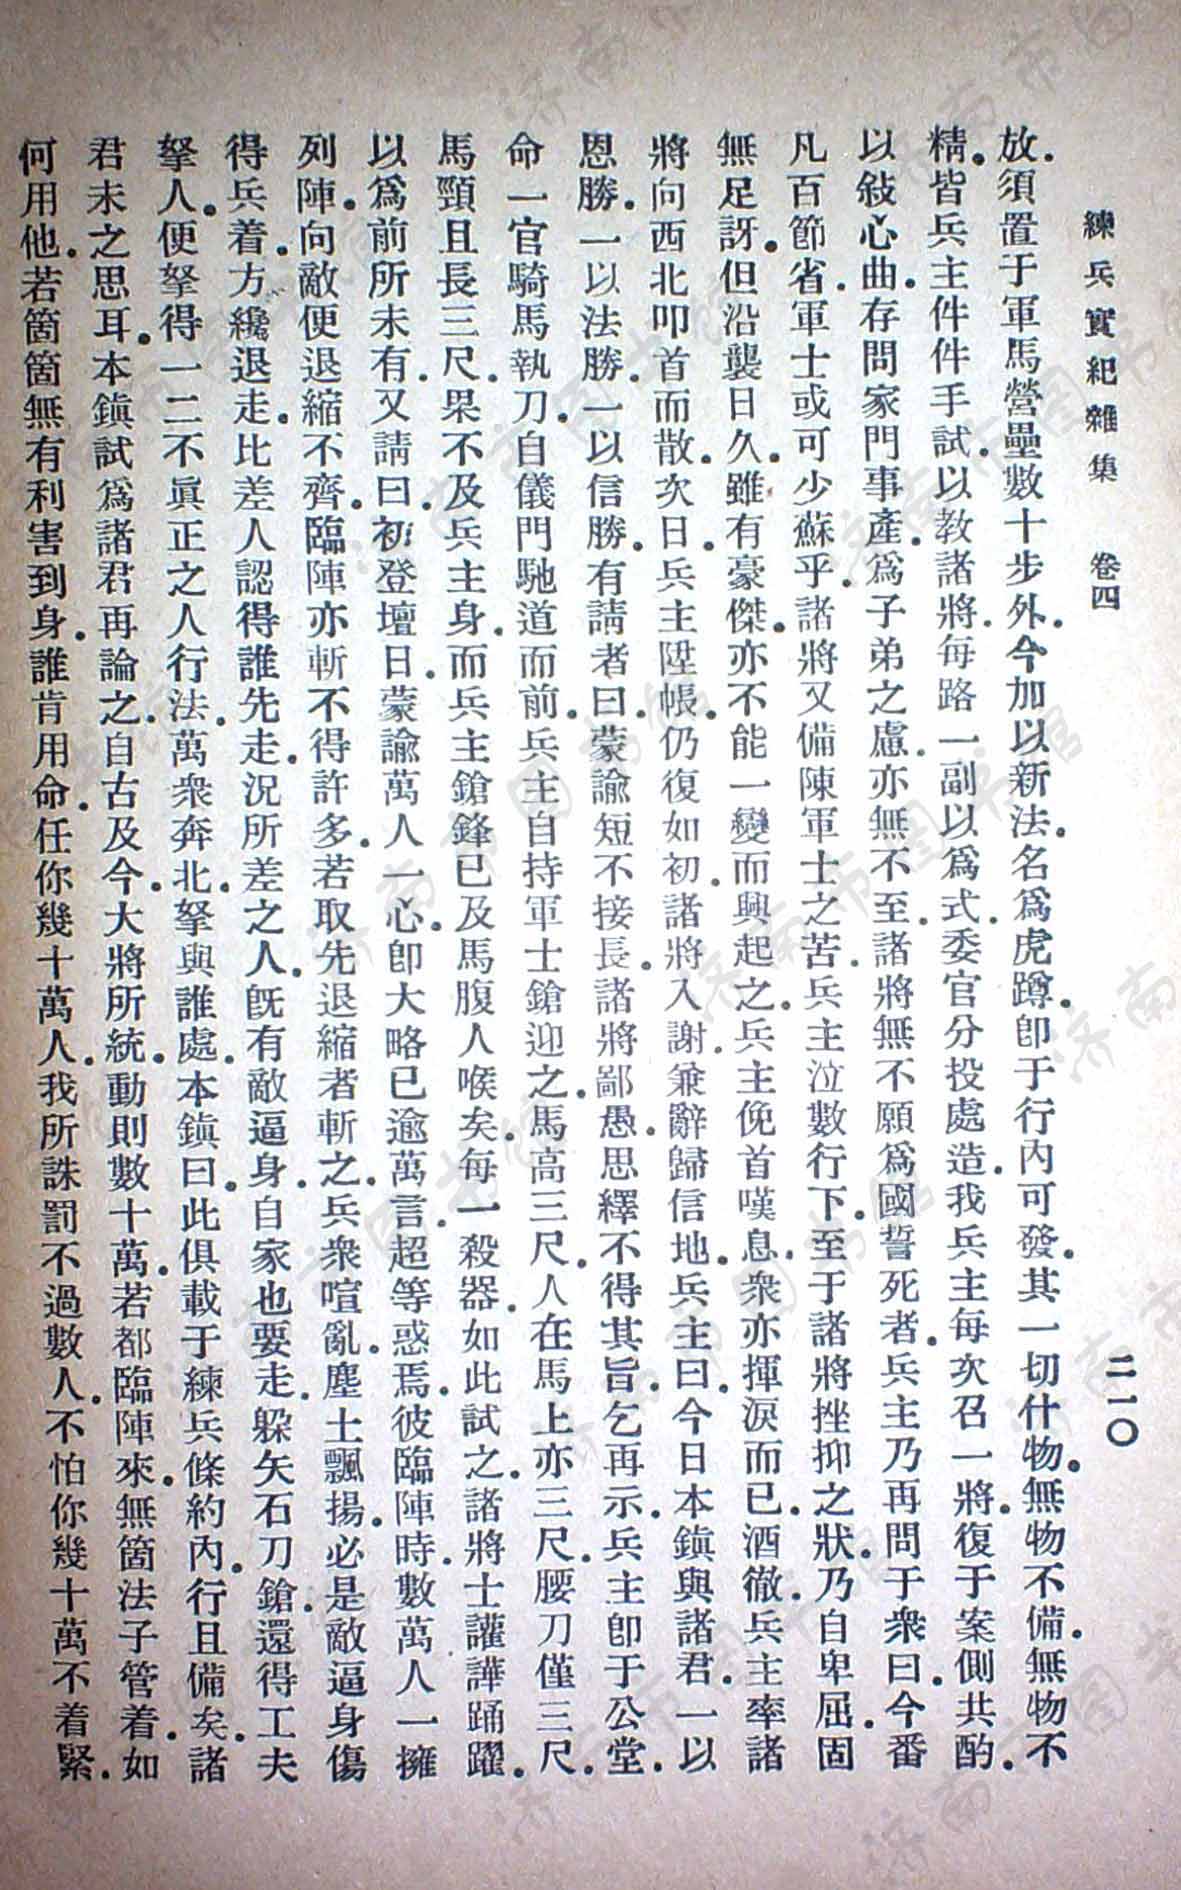 練兵實紀雜集　卷四　二一〇
放．須置于軍馬營壘數十步外．今加以新法．名爲虎蹲．卽于行內可發．其一切什物．無物不備．無物不
精．皆兵主件件手試．以教諸將．每路一副以爲式．委官分投處造．我兵主每次召一將．復于案側共酌．
以敍心曲．存問家門事產．爲子弟之慮．亦無不至．諸將無不願爲國誓死者．兵主乃再問于衆曰．今番
凡百節省．軍士或可少蘇乎．諸將又備陳軍士之苦．兵主泣數行下．至于諸將挫抑之狀．乃自卑屈．固
無足訝．但沿襲日久．雖有豪傑．亦不能一變而興起之．兵主俛首嘆息．衆亦揮淚而已．酒徹．兵主率諸
將向西北叩首而散．次日．兵主陞帳．仍復如初．諸將入謝．兼辭歸信地．兵主曰．今日本鎭與諸君．一以
恩勝．一以法勝．一以信勝．有請者曰．蒙諭短不接長．諸將鄙愚．思繹不得其旨．乞再示．兵主卽于公堂．
命一官騎馬執刀．自儀門馳道而前．兵主自持軍士鎗迎之．馬高三尺．人在馬上亦三尺．腰刀僅三尺．
馬頸且長三尺．果不及兵主身．而兵主鎗鋒已及馬腹人喉矣．每一殺器．如此試之．諸將士讙譁踊躍．
以爲前所未有．又請曰．初登壇日．蒙諭萬人一心．卽大略已逾萬言．超等惑焉．彼臨陣時．數萬人一擁
列陣．向敵便退縮不齊．臨陣亦斬不得許多．若取先退縮者斬之．兵衆喧亂．塵土飄揚．必是敵逼身傷
得兵着．方纔退走．比差人認得誰先走．況所差之人．既有敵逼身．自家也要走．躱矢石刀鎗．還得工夫
拏人．便拏得一二不眞正之人行法．萬衆奔北．拏與誰處．本鎭曰．此俱載于練兵條約內．行且備矣．諸
君未之思耳．本鎭試爲諸君再論之．自古及今．大將所統．動則數十萬．若都臨陣來．無箇法子管着．如
何用他．若箇箇無有利害到身．誰肯用命．任你幾十萬人．我所誅罰不過數人．不怕你幾十萬不着緊．